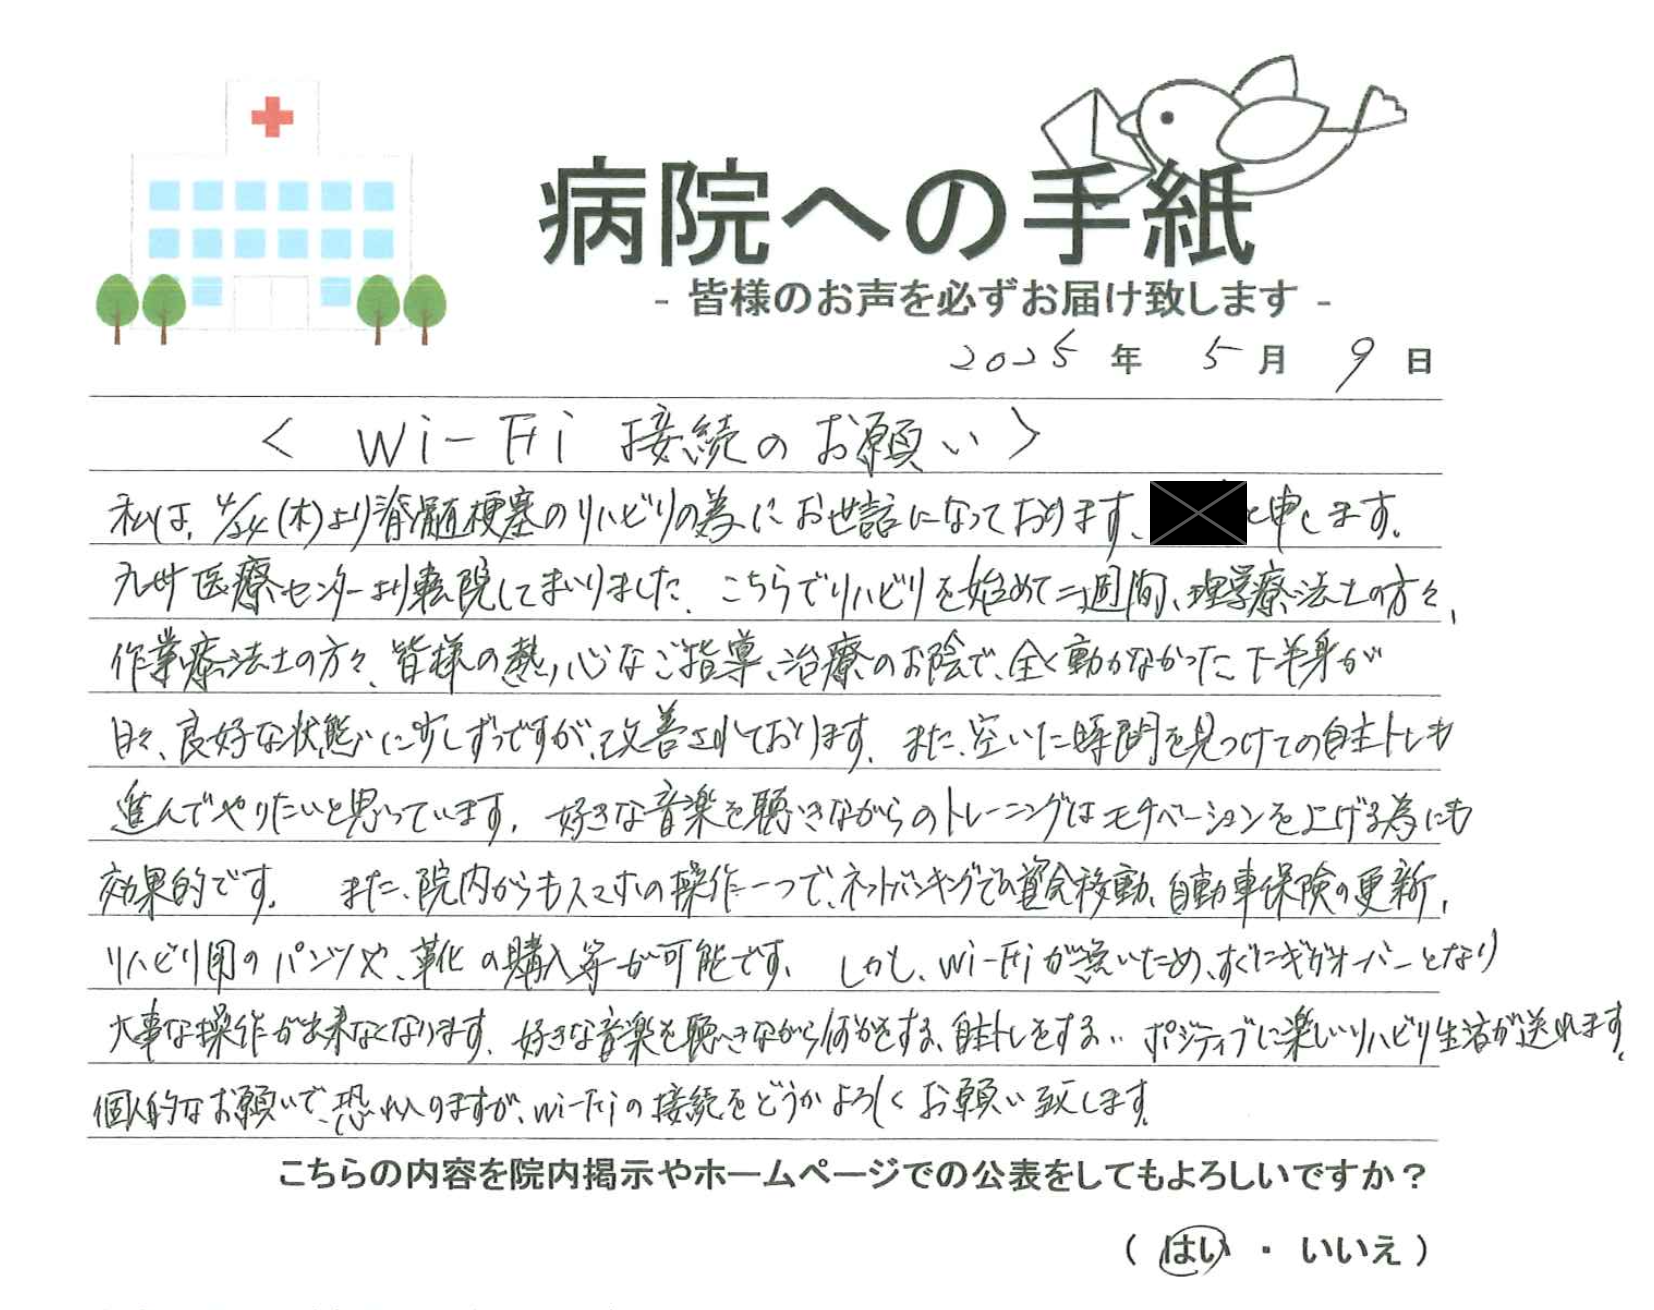 病院への手紙
- 皆様のお声を必ずお届け致します -
2025 年 5 月 9 日
< Wi-Fi 接続のお願い >
私は、4/24(木)より脊髄梗塞のリハビリの為にお世話になっております、 と申します。
九州医療センターより転院してまいりました。こちらでリハビリを始めて二週間、理学療法士の方々、
作業療法士の方々、皆様の熱心なご指導、治療のお陰で、全く動かなかった下半身が
日々、良好な状態に少しずつですが、改善されております。また、空いた時間を見つけての自主トレも
進んでやりたいと思っています。好きな音楽を聴きながらのトレーニングはモチベーションを上げる為にも
効果的です。 また、院内からもスマホの操作一つで、ネットバンキングでの資金移動、自動車保険の更新、
リハビリ用のパンツや、靴の購入等が可能です。 しかし、Wi-Fiが無いため、すぐにギガオーバーとなり
大事な操作が出来なくなります。好きな音楽を聴きながら何かをする、自主トレをする‥ ポジティブに楽しいリハビリ生活が送れます。
個人的なお願いで、恐れ入りますが、Wi-Fiの接続をどうかよろしくお願い致します。
こちらの内容を院内掲示やホームページでの公表をしてもよろしいですか？
( はい ・ いいえ )